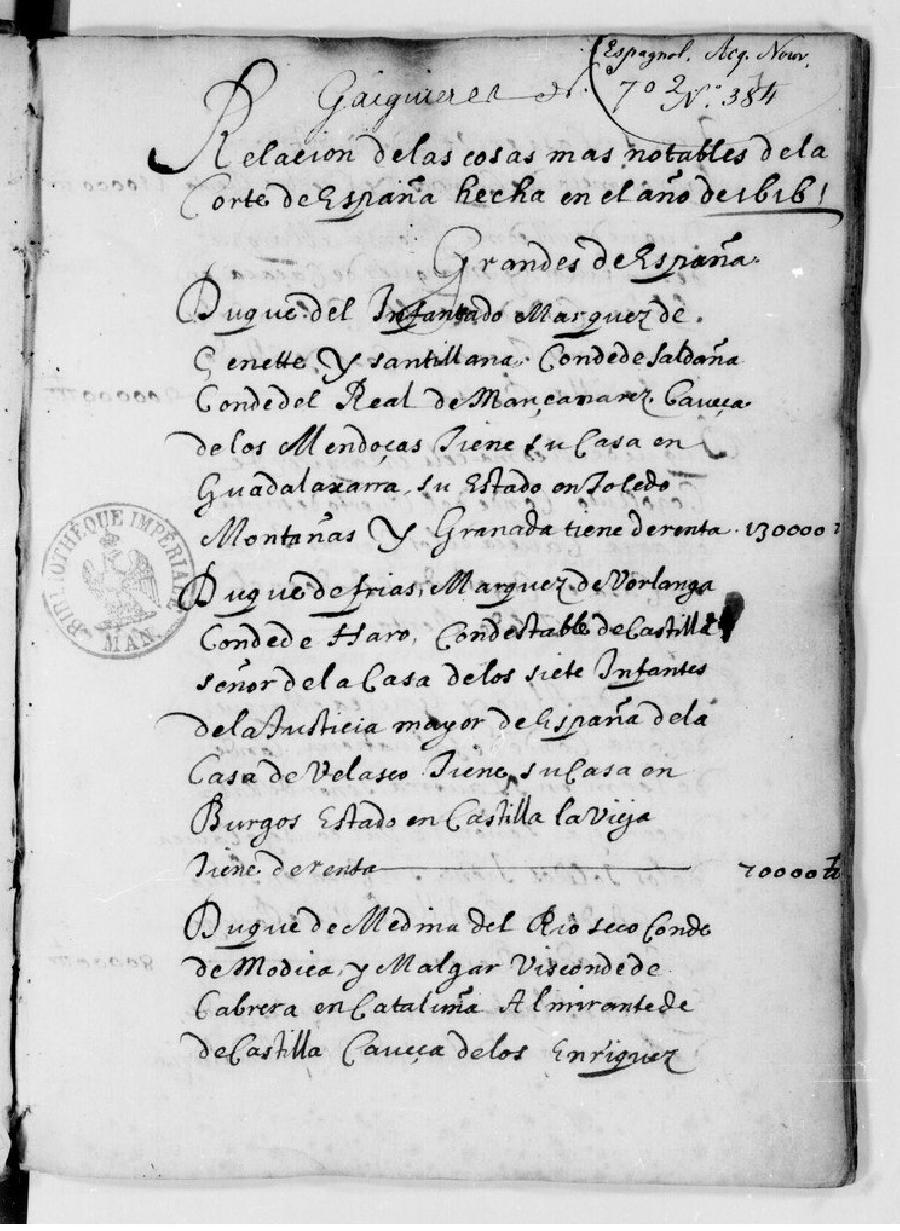 Espagnol. Acq. Nouv.
702 N.º 384
Relacion de las cosas mas notables de la
Corte de España hecha en el año de 1616
Grandes de España.
Duque del Infantado Marquez de
Çenette y santillana. Conde de Saldaña
Conde del Real de Mançanarez Caveça
de los Mendoças Tiene su Casa en
Guadalaxarra, su Estado en Toledo
Montañas y Granada tiene de renta. 130000
Duque de frias, Marquez de Vorlanga
Conde de Haro, Condestable de Castilla
señor de la Casa de los siete Infantes
de la Justicia mayor de España de la
Casa de Velasco Tiene su Casa en
Burgos Estado en Castilla la Vieja
Tiene de renta 70000
Duque de Medina del Rio seco Conde
de Modica, y Malgar Visconde de
Cabrera en Cataluña Almirante de
de Castilla Caveça de los Enriquez
BIBLIOTHÈQUE IMPÉRIALE
MAN.